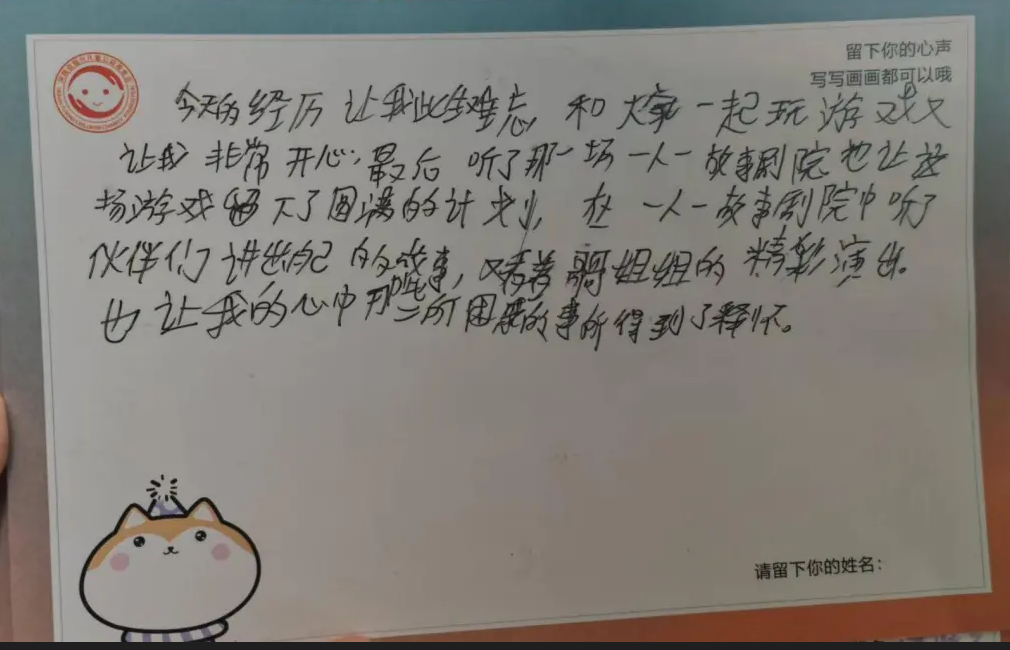 留下你的心声
写写画画都可以哦
今天的经历让我此生难忘,和大家一起玩游戏又
让我非常开心,最后听了那一场一人一故事剧院也让这
场游戏留下了圆满的计划,在一人一故事剧院中听了
伙伴们讲出自己的故事,又看着哥哥姐姐的精彩演出。
也让我的心中那些所困扰的事所得到了释怀。
请留下你的姓名: